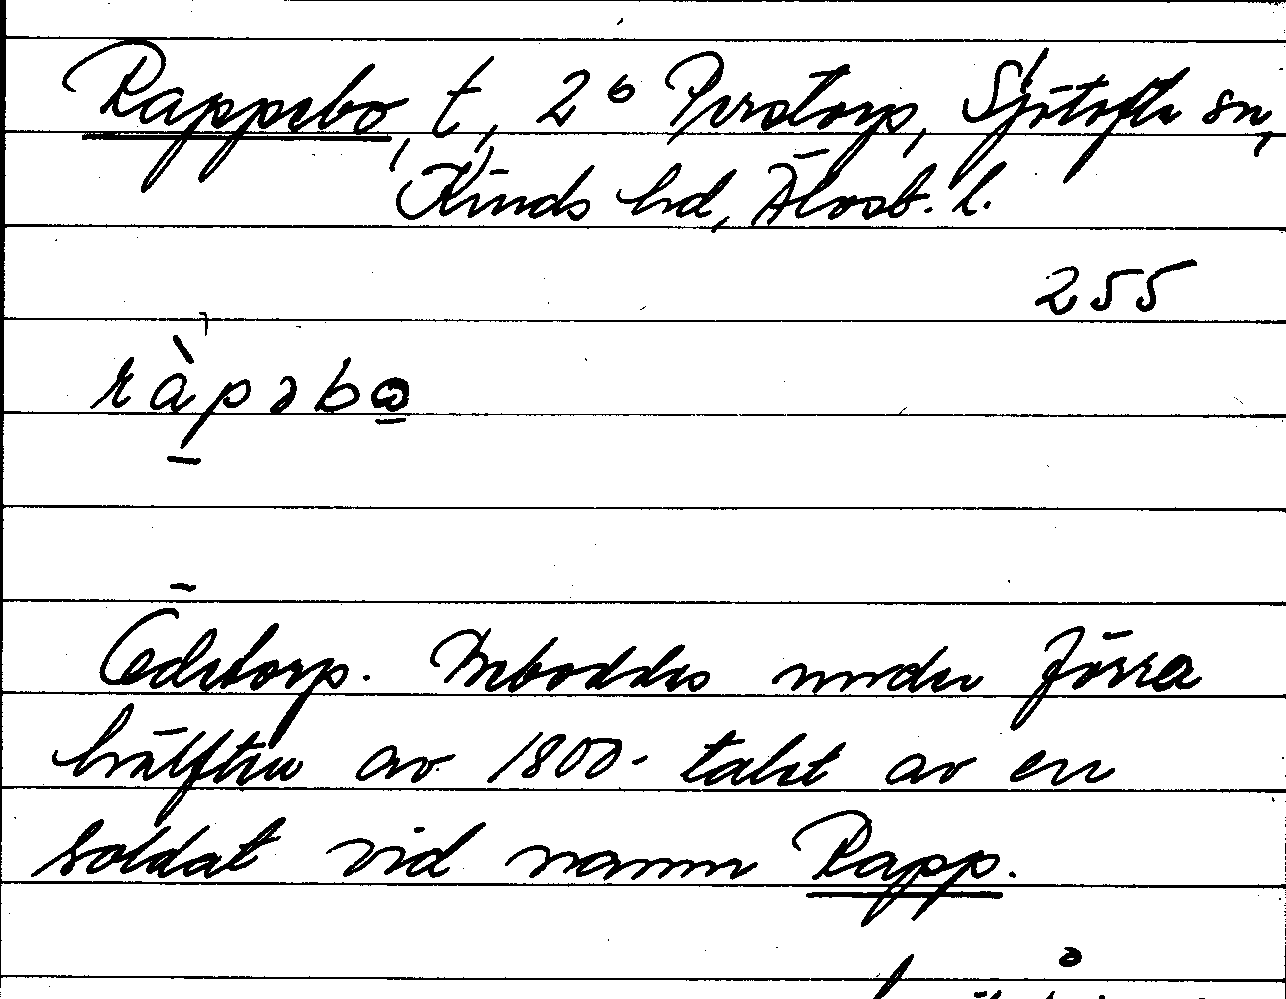 Rappebo, t, 2⁶ Perstorp, Sjötofta sn,
Kinds hd, Älvsb. l.
255
ràpəbω
Ödetorp. Beboddes under förra
hälften av 1800-talet av en
soldat vid namn Rapp.